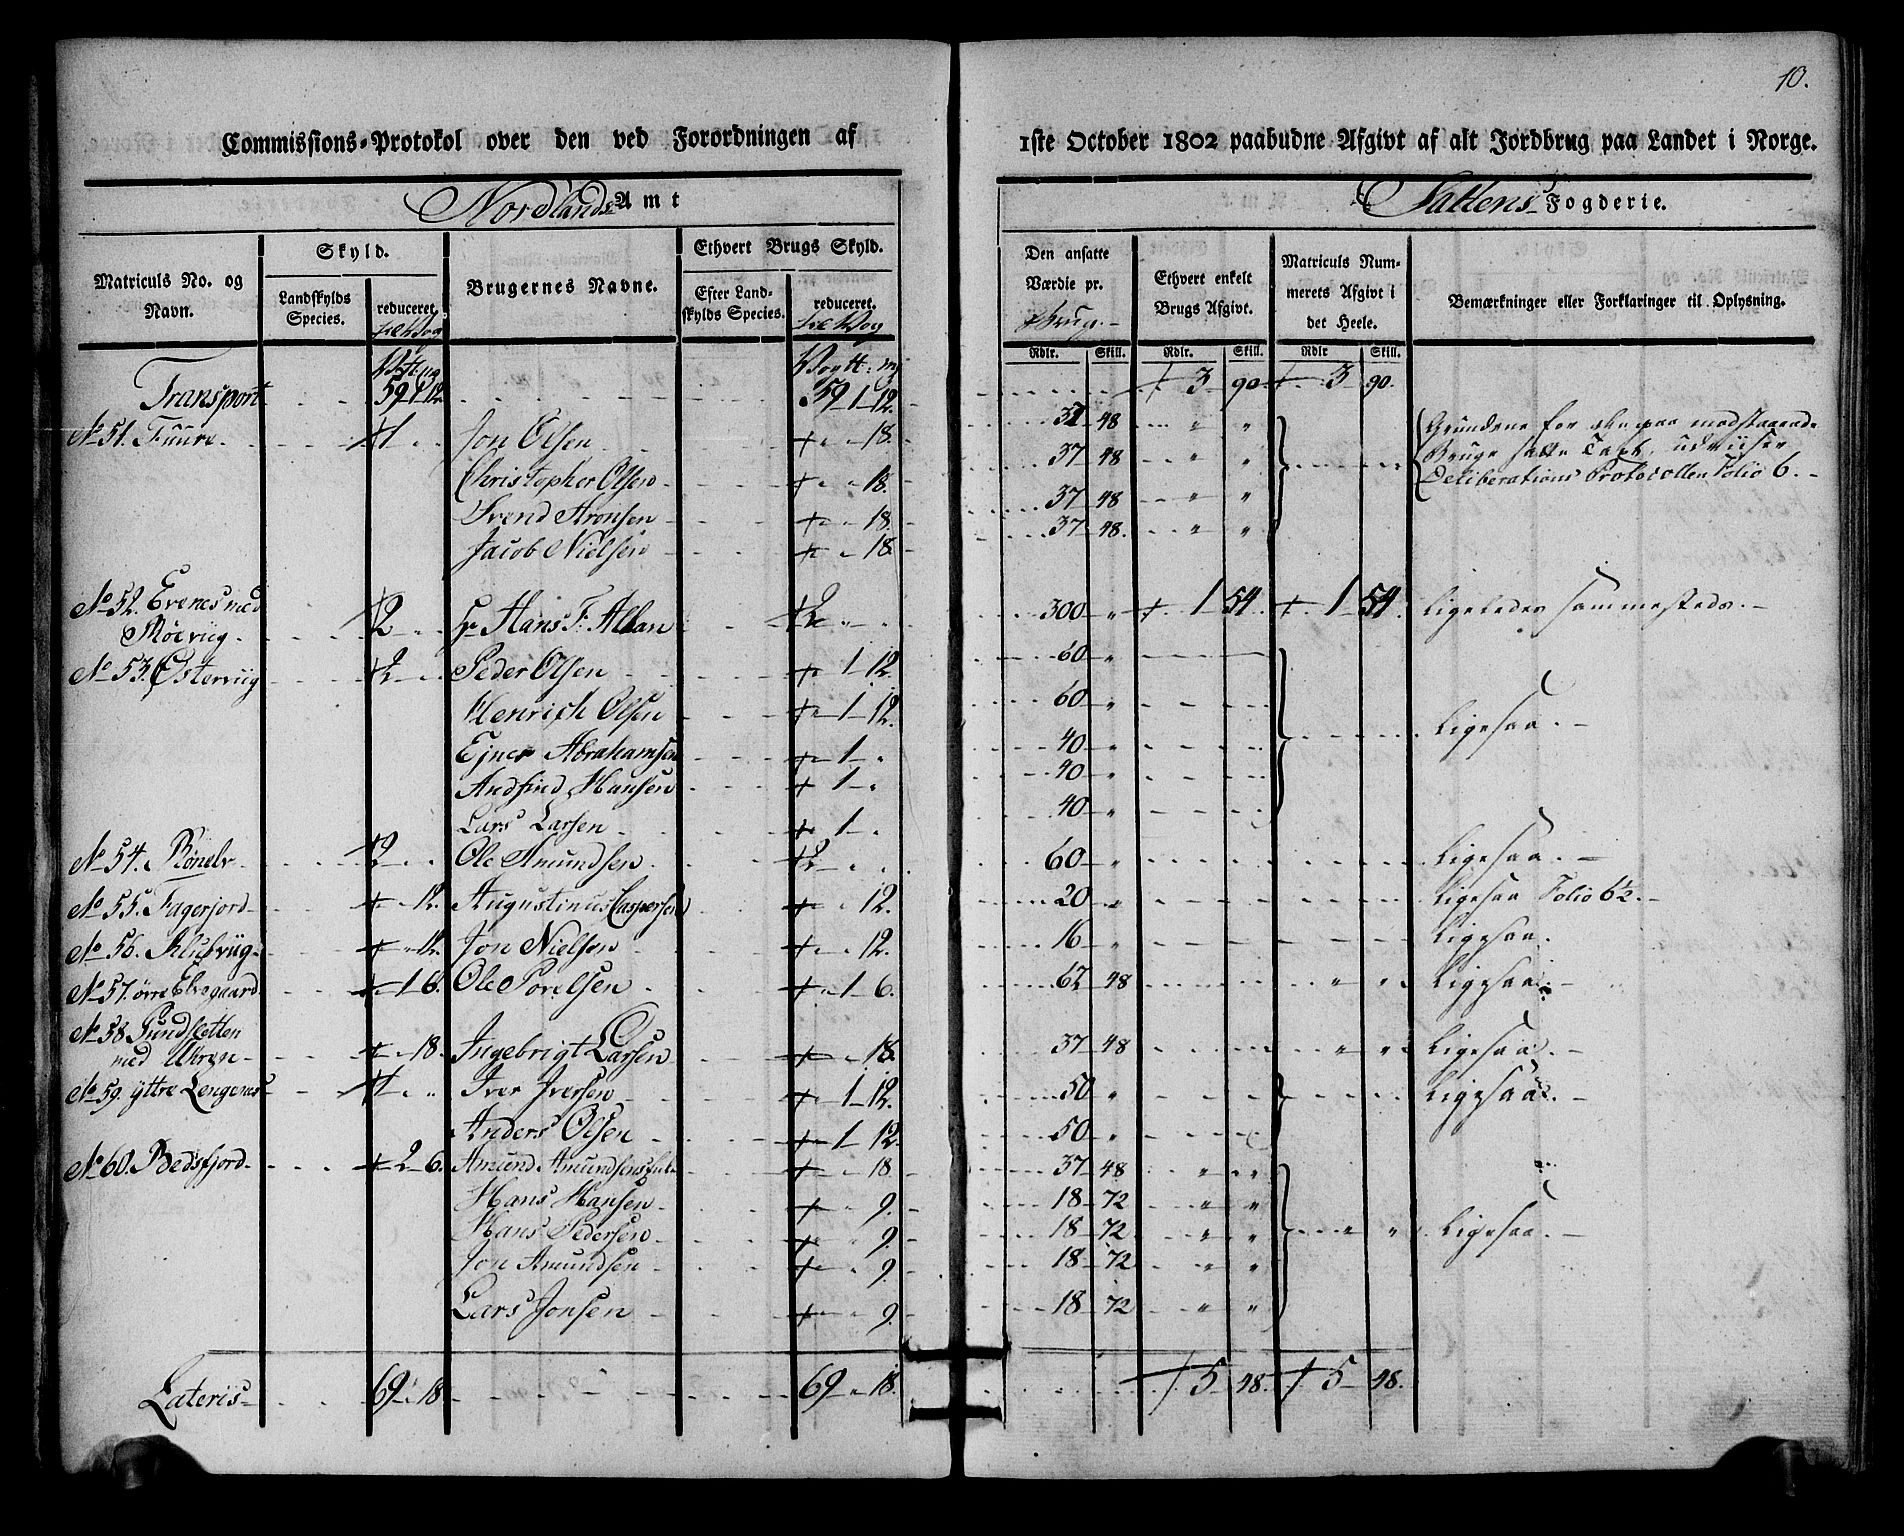 10.
Commissions-Protokol over den ved Forordningen af 1ste October 1802 paabudne Afgivt af alt Jordbrug paa Landet i Norge.
Nordlands Amt Saltens Fogderie.
Matriculs No. og Navn. Skyld. Landskylds Species. reduceret. Brugernes Navne. Ethvert Brugs Skyld. Efter Landskylds Species. reduceret. Den ansatte Værdie pr. Brug. Ethvert enkelt Brugs Afgivt. Matriculs Nummerets Afgivt i det Heele. Bemærkninger eller Forklaringer til Oplysning.
Rdlr. Skill. Rdlr. Skill. Rdlr Skill.
Transport 59 1 12. 59-1-12. 3 90 3 90.
No 51. Tuure 1 " Jon Olsen " 18. 31 48 " " Grundene for den paa modstaaende
Christopher Olsen " 18. 37 48 " " Bruge satte Taxt, udviiser
Svend Aronsen " 18. 37 48 " " Deliberations Protocollen Folio 6.
Jacob Nielsen " 18. 37 48. " "
No 52. Evenes med
Moeviig 2 " Hr Hans F. Alban 2 " 300 " 1 54. 1 54. Ligeledes sammesteds.
No 53. Østerviig 2 " Peder Olsen 1 12. 60 "
Henrich Olsen 1 12. 60 " Ligesaa.
Ejner Abrahamsen 1 " 40 "
Andfind Hansen 1 " 40 "
Lars Larsen 1 " 40 "
No 54. Bønelv 2 " Ole Amundsen 2 " 60 " Ligesaa.
No 55. Fagerjord 12. Augustinus Caspersen 12. 20 " Ligesaa Folio 6½.
No 56. Klubviig 12. Jon Nielsen 12. 16 " Ligesaa.
No 57. øvre Elvegaard 1 6. Ole Povelsen 1 6. 62 48 " " Ligesaa.
No 58. Sundsletten
med 18. Ingebrigt Larsen 18. 37 48 " " Ligesaa.
No 59. yttre Lengenes 1 " " Iver Iversen 1 12. 50 " Ligesaa.
Anders Olsen 1 12. 50 "
No 60. Bedsfjord 2 6. Amund Amundsens 18. 37 48 " "
Hans Hansen 9. 18 72 " "
Hans Pedersen 9. 18 72 " " " " Ligesaa.
Jon Amundsen 9. 18 72 " "
Lars Jonsen 9. 18 72 " "
Lateris 69 " 18 69 " 18. 5 48. 5 48.